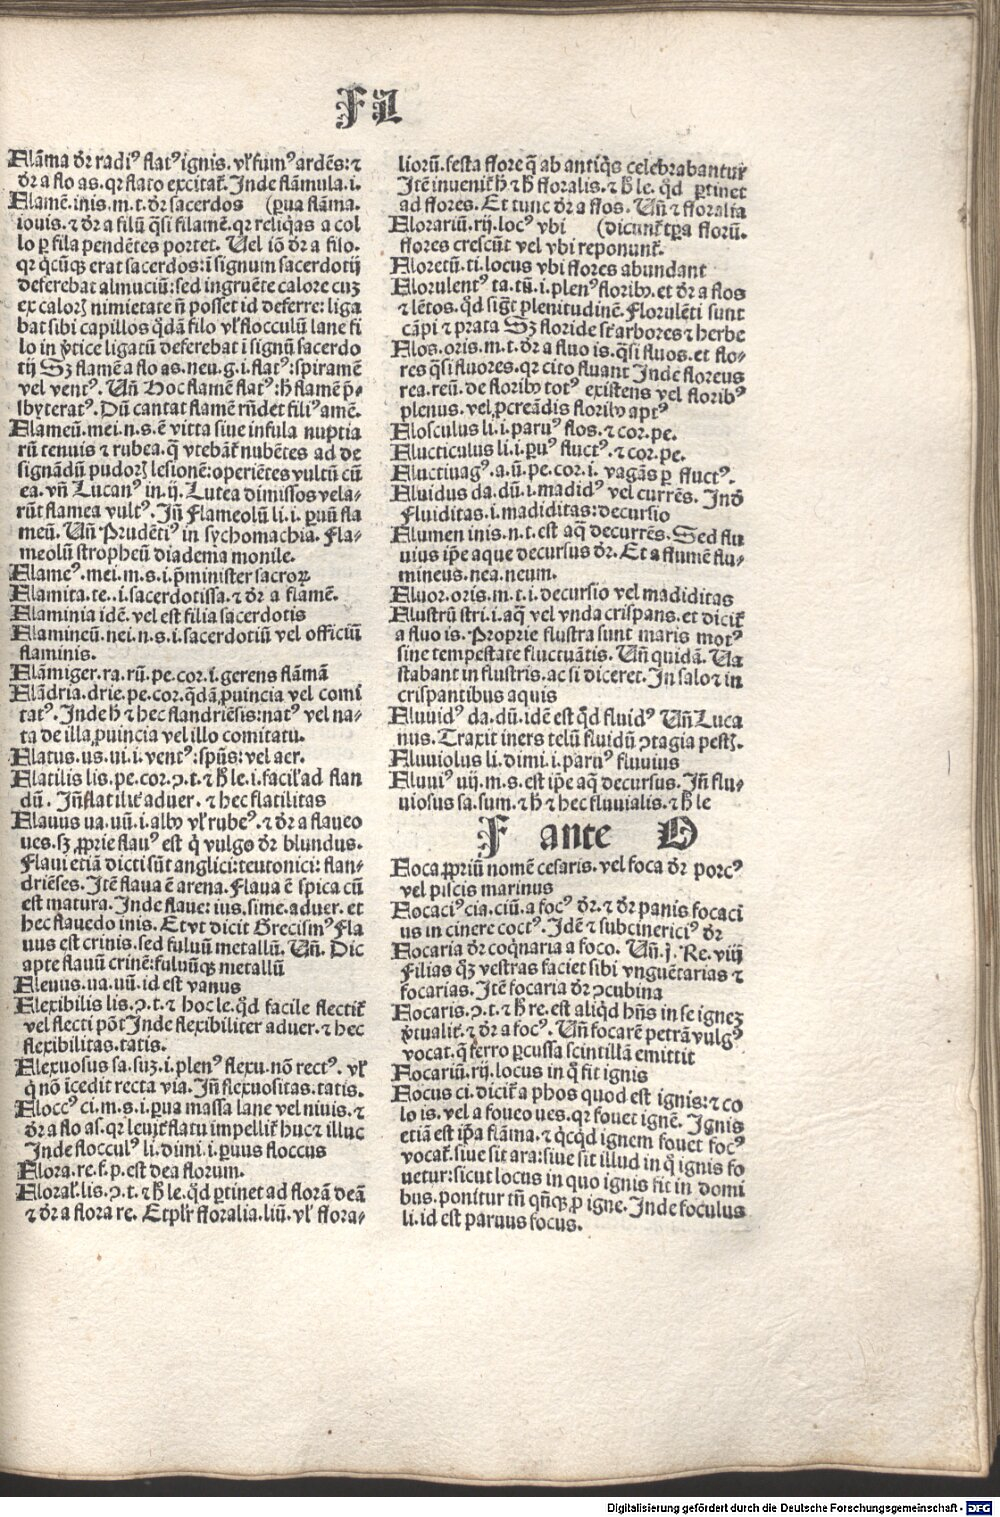 FL
Flāma dr̄ radiꝰ flatꝰ ignis. vl̓ fumꝰ ardēs: ⁊
dr̄ a flo as. qr flato excitat᷑. Inde flāmula. i.
Flamē. inis. m. t. dr̄ sacerdos (ꝑua flāma.
iouis. ⁊ dr̄ a filū qsi filamē. qr reliqas a col
lo ꝑ fila pendētes portet. Uel iō dr̄ a filo.
qr qcūqꝫ erat sacerdos: ī signum sacerdotij
deferebat almuciū: sed ingruēte calore cuꝫ
ex caloꝝ nimietate ñ posset id deferre: liga
bat sibi capillos qdā filo vl̓ flocculū lane fi
lo in v̓tice ligatū deferebat ī signū sacerdo
tij Sꝫ flamē a flo as. neu. g. i. flatꝰ: spiramē
vel ventꝰ. Uñ Hoc flamē flatꝰ: h̄ flamē p̄⸗
sbyteratꝰ. Dū cantat flamē rn̄det filiꝰ amē.
Flameū. mei. n. s. ē vitta siue infula nuptia
rū tenuis ⁊ rubea. q̄ vtebāt᷑ nubētes ad de
signādū pudoꝝ lesionē: operiētes vultū cū
ea. vñ Lucanꝰ in. ij. Lutea dimissos vela⸗
rūt flamea vultꝰ. Jñ Flameolū li. i. ꝑuū fla
meū. Uñ Prudētiꝰ in sychomachia. Fla⸗
meolū stropheū diadema monile.
Flameꝰ. mei. m. s. i. p̄minister sacroꝝ
Flamita. te.. i. sacerdotissa. ⁊ dr̄ a flamē.
Flaminia idē. vel est filia sacerdotis
Flamineū. nei. n. s. i. sacerdotiū vel officiū
flaminis.
Flāmiger. ra. rū. pe. cor. i. gerens flāmā
Flādria. drie. pe. cor. qdā ꝓuincia vel comi
tatꝰ. Inde h̄ ⁊ hec flandriēsis: natꝰ vel na⸗
ta de illa ꝓuincia vel illo comitatu.
Flatus. us. ui. i. ventꝰ: spūs: vel aer.
Flatilis lis. pe. cor. ꝯ. t. ⁊ h̄ le. i. facil̓ ad flan
dū. Jñ flatilit᷑ aduer. ⁊ hec flatilitas
Flauus ua. uū. i. albꝰ vl̓ rubeꝰ. ⁊ dr̄ a flaueo
ues. sꝫ ꝓprie flauꝰ est q̇ vulgo dr̄ blundus.
Flaui etiā dicti sūt anglici: teutonici: flan⸗
driēses. Itē flaua ē arena. Flaua ē spica cū
est matura. Inde flaue: ius. sime. aduer. et
hec flauedo inis. Et vt dicit Grecismꝰ Fla
uus est crinis. sed fuluū metallū. Uñ. Dic
apte flauū crinē: fuluūqꝫ metallū
Fleuus. ua. uū. id est vanus
Flexibilis lis. ꝯ. t. ⁊ hoc le. qd facile flectit᷑
vel flecti pōt Inde flexibiliter aduer. ⁊ hec
flexibilitas. tatis.
Flexuosus sa. suꝫ. i. plenꝰ flexu. nō rectꝰ. vl̓
q̇ nō īcedit recta via. Jñ flexuositas. tatis.
Floccꝰ ci. m. s. i. ꝑua massa lane vel niuis. ⁊
dr̄ a flo as. qr leuit᷑ flatu impellit᷑ huc ⁊ illuc
Inde flocculꝰ li. dimi. i. ꝑuus floccus
Flora. re. f. p. est dea florum.
Floral̓. lis. ꝯ. t. ⁊ h̄ le. qd ꝑtinet ad florā deā
⁊ dr̄ a flora re. Et pl̓r floralia. liū. vl̓ flora⸗
liorū. festa flore q̄ ab antiqs celebrabantur
Itē inuenit᷑ h̄ ⁊ h̄ floralis. ⁊ h̄ le. qd ꝑtinet
ad flores. Et tunc dr̄ a flos. Uñ ⁊ floralia
Florariū. rij. locꝰ vbi (dicunt᷑ tp̄a florū.
flores crescūt vel vbi reponunt᷑.
Floretū. ti. locus vbi flores abundant
Florulentꝰ ta. tū. i. plenꝰ floribꝰ. et dr̄ a flos
⁊ lētos. qd sigt plenitudinē. Florulēti sunt
cāpi ⁊ prata Sꝫ floride st̄ arbores ⁊ herbe
Flos. oris. m. t. dr̄ a fluo is. qsi fluos. et flo⸗
res qsi fluores. qr cito fluant Inde floreus
rea. reū. de floribꝰ totꝰ existens vel floribꝰ
plenus. vel ꝓcreādis floribꝰ aptꝰ
Flosculus li. i. paruꝰ flos. ⁊ cor. pe.
Flucticulus li. i. ꝑuꝰ fluctꝰ. ⁊ cor. pe.
Fluctiuagꝰ. a. ū. pe. cor. i. vagās ꝑ fluctꝰ.
Fluidus da. dū. i. madidꝰ vel currēs. Ind̄
Fluiditas. i. madiditas: decursio
Flumen inis. n. t. est aq̄ decurrēs. Sed flu
uius ip̄e aque decursus dr̄. Et a flumē flu⸗
mineus. nea. neum.
Fluor. oris. m. t. i. decursio vel madiditas
Flustrū stri. i. aq̄ vel vnda crispans. et dicit᷑
a fluo is. Proprie flustra sunt maris motꝰ
sine tempestate fluctuātis. Uñ quidā. Ua
stabant in flustris. ac si diceret. In salo ⁊ in
crispantibus aquis
Fluuidꝰ da. dū. idē est qd fluidꝰ Uñ Luca
nus. Traxit iners telū fluidū ꝯtagia pestꝭ.
Fluuiolus li. dimi. i. paruꝰ fluuius
Fluuiꝰ uij. m. s. est ip̄e aq̄ decursus. Jñ flu⸗
uiosus sa. sum. ⁊ h̄ ⁊ hec fluuialis. ⁊ h̄ le
F ante O
Foca ꝓpriū nomē cesaris. vel foca dr̄ porcꝰ
vel piscis marinus
Focaciꝰ cia. ciū. a focꝰ dr̄. ⁊ dr̄ panis focaci
us in cinere coctꝰ. Idē ⁊ subcinericiꝰ dr̄
Focaria dr̄ coq̇naria a foco. Uñ. j. Re. viij
Filias qꝫ vestras faciet sibi vnguētarias ⁊
focarias. Itē focaria dr̄ ꝯcubina
Focaris. ꝯ. t. ⁊ h̄ re. est aliqd hn̄s in se ignez
v̓tualit᷑. ⁊ dr̄ a focꝰ. Uñ focarē petrā vulgꝰ
vocat. q̄ ferro ꝑcussa scintillā emittit
Focariū. rij. locus in q̇ fit ignis
Focus ci. dicit᷑ a phos quod est ignis: ⁊ co
lo is. vel a foueo ues. qr fouet ignē. Ignis
etiā est ip̄a flāma. ⁊ qcqd ignem fouet focꝰ
vocat᷑. siue sit ara: siue sit illud in q̇ ignis fo
uetur: sicut locus in quo ignis fit in domi
bus. ponitur tn̄ qn̄qꝫ ꝓ igne. Inde foculus
li. id est paruus focus.
Digitalisierung gefördert durch die Deutsche Forschungsgemeinschaft - DFG